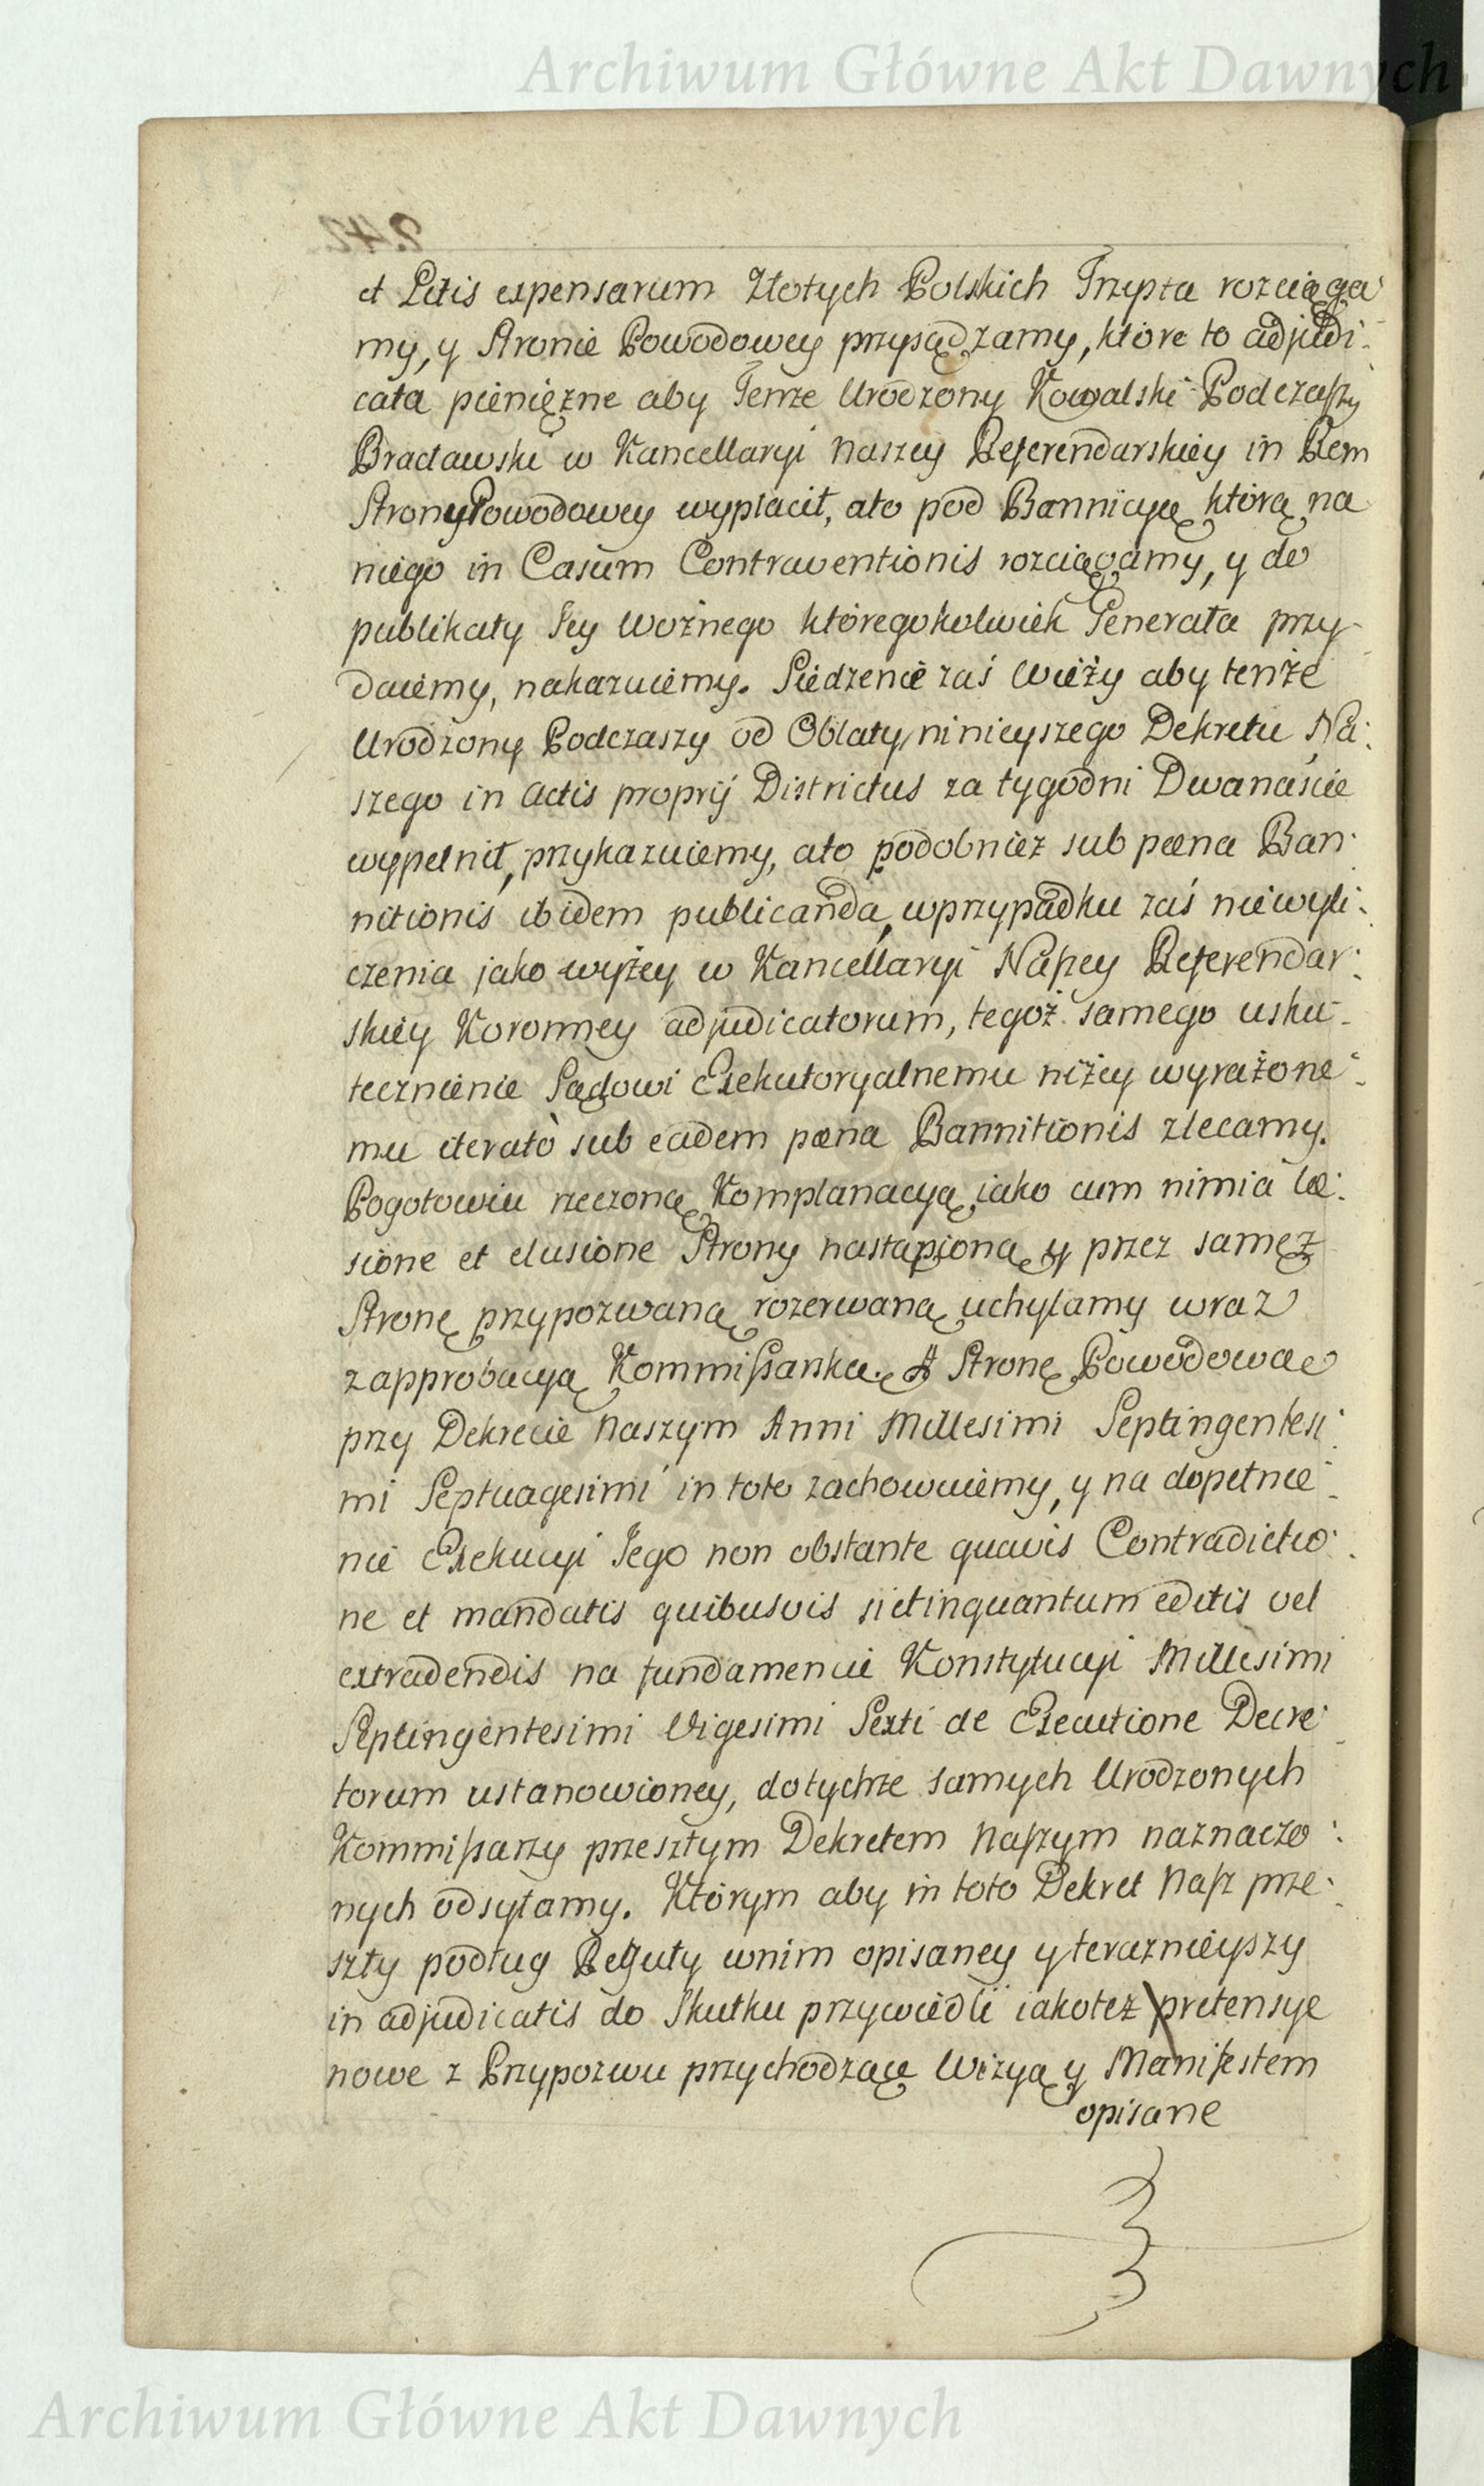 Archiwum Główne Akt Dawnych
et Litis expensarum Złotych Polskich Trzysta rozciąga-
my, y Stronie Powodowey przysądzamy, które to adjudi-
cata pieniężne aby Tenze Urodzony Kowalski Podczaszy
Bracławski w Kancellaryi Naszey Referendarskiey in Rem
Strony Powodowey wypłacił, a to pod Bannicyą którą na
niego in Casum Contraventionis rozciągamy, y do
publikaty Jey Woźnego któregokolwiek Generała przy-
daiemy, nakazuiemy. Siedzenie zaś Wieży aby tenże
Urodzony Podczaszy od Oblaty ninieyszego Dekretu Na-
szego in Actis proprij Districtus za tygodni Dwanaście
wypełnił, przykazuiemy, ato podobnież sub pæna Ban-
nitionis ibidem publicanda, w przypadku zaś niewyli-
czenia jako wyżey w Kancellaryi Naszey Referendar-
skiey Koronney adjudicatorum, tegoż samego usku-
tecznienie Sądowi Exekutoryalnemu niżey wyrażone-
mu iterato sub eadem pæna Bannitionis zlecamy.
Pogotowiu rzeczoną Komplanacyą iako cum nimia læ-
sione et elusione Strony nastąpioną y przez samęż
Stronę przypozwaną rozerwaną uchylamy wraz
z approbacyą Kommissarską. A Stronę Powodową
przy Dekrecie Naszym Anni Millesimi Septingentesi-
mi Septuagesimi in toto zachowuiemy, y na dopełnie-
nie Exekucyi Jego non obstante quavis Contradictio-
ne et mandatis quibusvis sietinquantum editis vel
extradendis na fundamencie Konstytucyi Millesimi
Septingentesimi Vigesimi Sexti de Executione Decre-
torum ustanowioney, do tychże samych Urodzonych
Kommissarzy przeszłym Dekretem Naszym naznaczo-
nych odsyłamy. Którym aby in toto Dekret Nasz prze-
szły podług Reguły w nim opisaney y teraznieyszy
in adjudicatis do Skutku przywiedli iakoteż pretensye
nowe z Przypozwu przychodzące Wizyą y Manifestem
opisane
Archiwum Główne Akt Dawnych